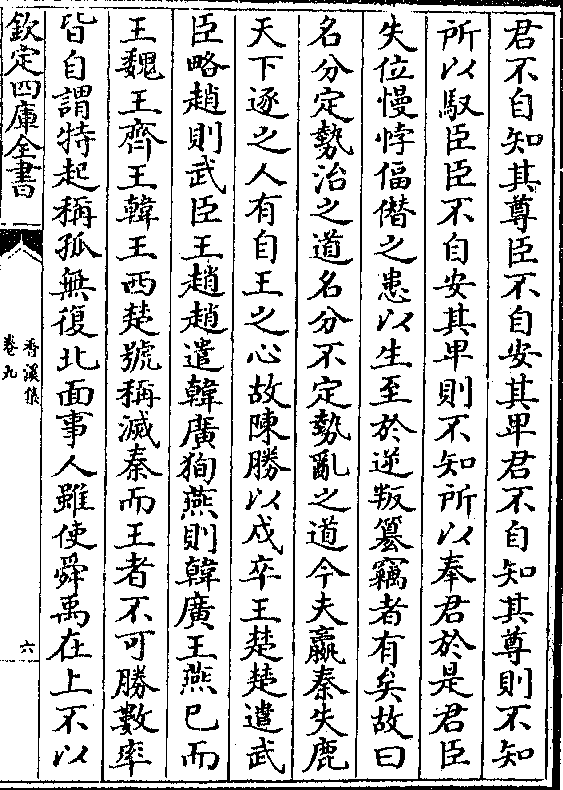 君不自知其尊臣不自安其卑君不自知其尊則不知
所以馭臣臣不自安其卑則不知所以奉君於是君臣
失位慢悖偪僣之患以生至於逆叛簒竊者有矣故曰
名分定勢治之道名分不定勢亂之道今夫嬴秦失鹿
天下逐之人有自王之心故陳勝以戍卒王楚楚遣武
臣略趙則武臣王趙趙遣韓廣狥燕則韓廣王燕已而
王魏王齊王韓王西楚號稱滅秦而王者不可勝數率
皆自謂特起稱孤無復北面事人雖使舜禹在上不以
欽定四庫全書
香溪集
卷九
六